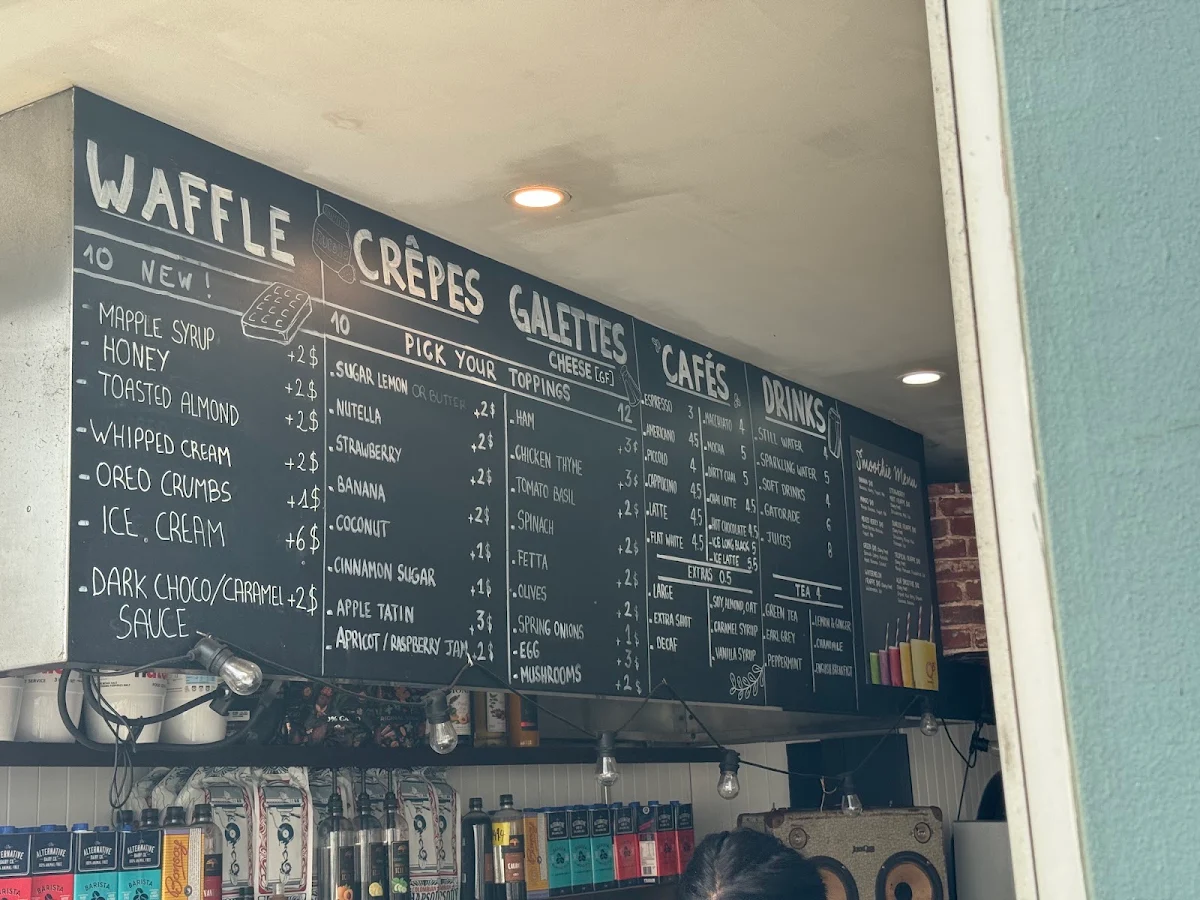 WAFFLE
10 NEW!
- MAPPLE SYRUP +2$
- HONEY +2$
- TOASTED ALMOND +2$
- WHIPPED CREAM +2$
- OREO CRUMBS +1$
- ICE.CREAM +6$
- DARK CHOCO/CARAMEL +2$
SAUCE
CRÊPES
GALETTES
CHEESE [GF]
10
PICK YOUR TOPPINGS
12
.SUGAR LEMON OR BUTTER +2$
.NUTELLA +2$
.STRAWBERRY +2$
.BANANA +2$
.COCONUT +1$
.CINNAMON SUGAR +1$
.APPLE TATIN 3$
.APRICOT / RASPBERRY JAM +2$
.HAM +3$
.CHICKEN THYME +3$
.TOMATO BASIL +2$
.SPINACH +2$
.FETTA +2$
.OLIVES +2$
.SPRING ONIONS +1$
.EGG +3$
.MUSHROOMS +2$
CAFÉS
.ESPRESSO 3
.AMERICANO 4.5
.PICCOLO 4
.CAPPUCINO 4.5
.LATTE 4.5
.FLAT WHITE 4.5
.MACCHIATO 4
.MOCHA 5
.DIRTY CHAI 5
.CHAI LATTE 4.5
.HOT CHOCOLATE 4.5
.ICE LONG BLACK 5
.ICE LATTE 5.5
EXTRAS 0.5
.LARGE
.EXTRA SHOT
.DECAF
.SOY, ALMOND, OAT
.CARAMEL SYRUP
.VANILLA SYRUP
DRINKS
.STILL WATER 4
.SPARKLING WATER 5
.SOFT DRINKS 4
.GATORADE 6
.JUICES 8
TEA 4
.GREEN TEA
.EARL GREY
.PEPPERMINT
.LEMON & GINGER
.CHAMOMILE
.ENGLISH BREAKFAST
Smoothie Menu
ALTERNATIVE
DAIRY CO
BARISTA
ALTERNATIVE
DAIRY CO
BARISTA